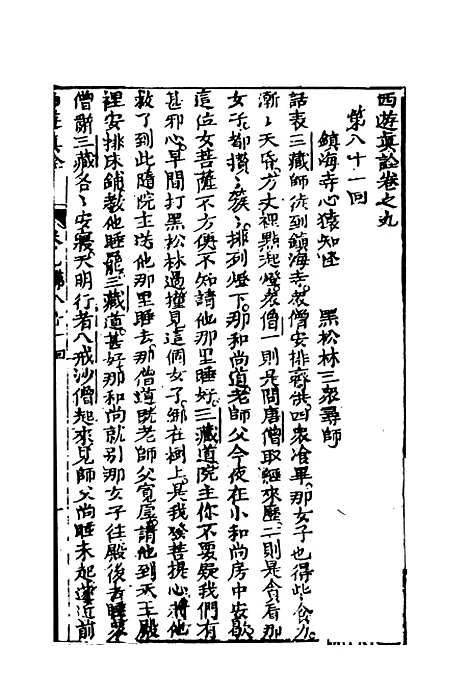 西遊真詮卷之九
第八十一回
鎮海寺心猿知怪 黑松林三衆尋師
話表三藏師徒到鎮海寺衆僧安排齋供四衆飡畢那女子也得些食力
漸〻天昏方丈裡點起燈衆僧一則是問唐僧取經來歷二則是貪看那
女子都攢〻簇〻排列燈下那和尚道老師父今夜在小和尚房中安歇
這位女菩薩不方便不知請他那里睡好三藏道院主你不要疑我們有
甚邪心早間打黑松林過撞見這個女子綁在樹上是我發菩提心將他
救了到此隨院主送他那里睡去那僧道既老師父寬厚請他到天王殿
裡安排床鋪教他睡罷三藏道甚好那和尚就別那女子往殿後去睡衆
僧辭三藏各〻安寢天明行者八戒沙僧起來見師父尚睡未起遂近前